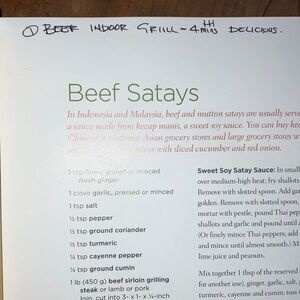 ① BEEF INDOOR GRILL - 4 mins DELICIOUS.
Beef Satays
In Indonesia and Malaysia, beef and mutton satays are usually serve
a sauce made from kecap manis, a sweet soy sauce. You can buy kec
Asian grocery stores and large grocery stores w
with sliced cucumber and red onion.
1 tsp finely grated or minced
fresh ginger
1 clove garlic, pressed or minced
1 tsp salt
½ tsp pepper
½ tsp ground coriander
½ tsp turmeric
¼ tsp cayenne pepper
¼ tsp ground cumin
1 lb (450 g) beef sirloin grilling
steak or lamb or pork
loin, cut into 3- x 1- x ¼-inch
Sweet Soy Satay Sauce: In small
over medium-high heat; fry shallots
Remove with slotted spoon. Add gar
golden. Remove with slotted spoon,
mortar with pestle, pound Thai pep
shallots and garlic and pound until a
(Or finely mince Thai peppers; add
and mince until almost smooth.) M
lime juice and peanuts.
Mix together 1 tbsp of the reserved
for another use), ginger, garlic, salt,
turmeric, cayenne and cumin; toss